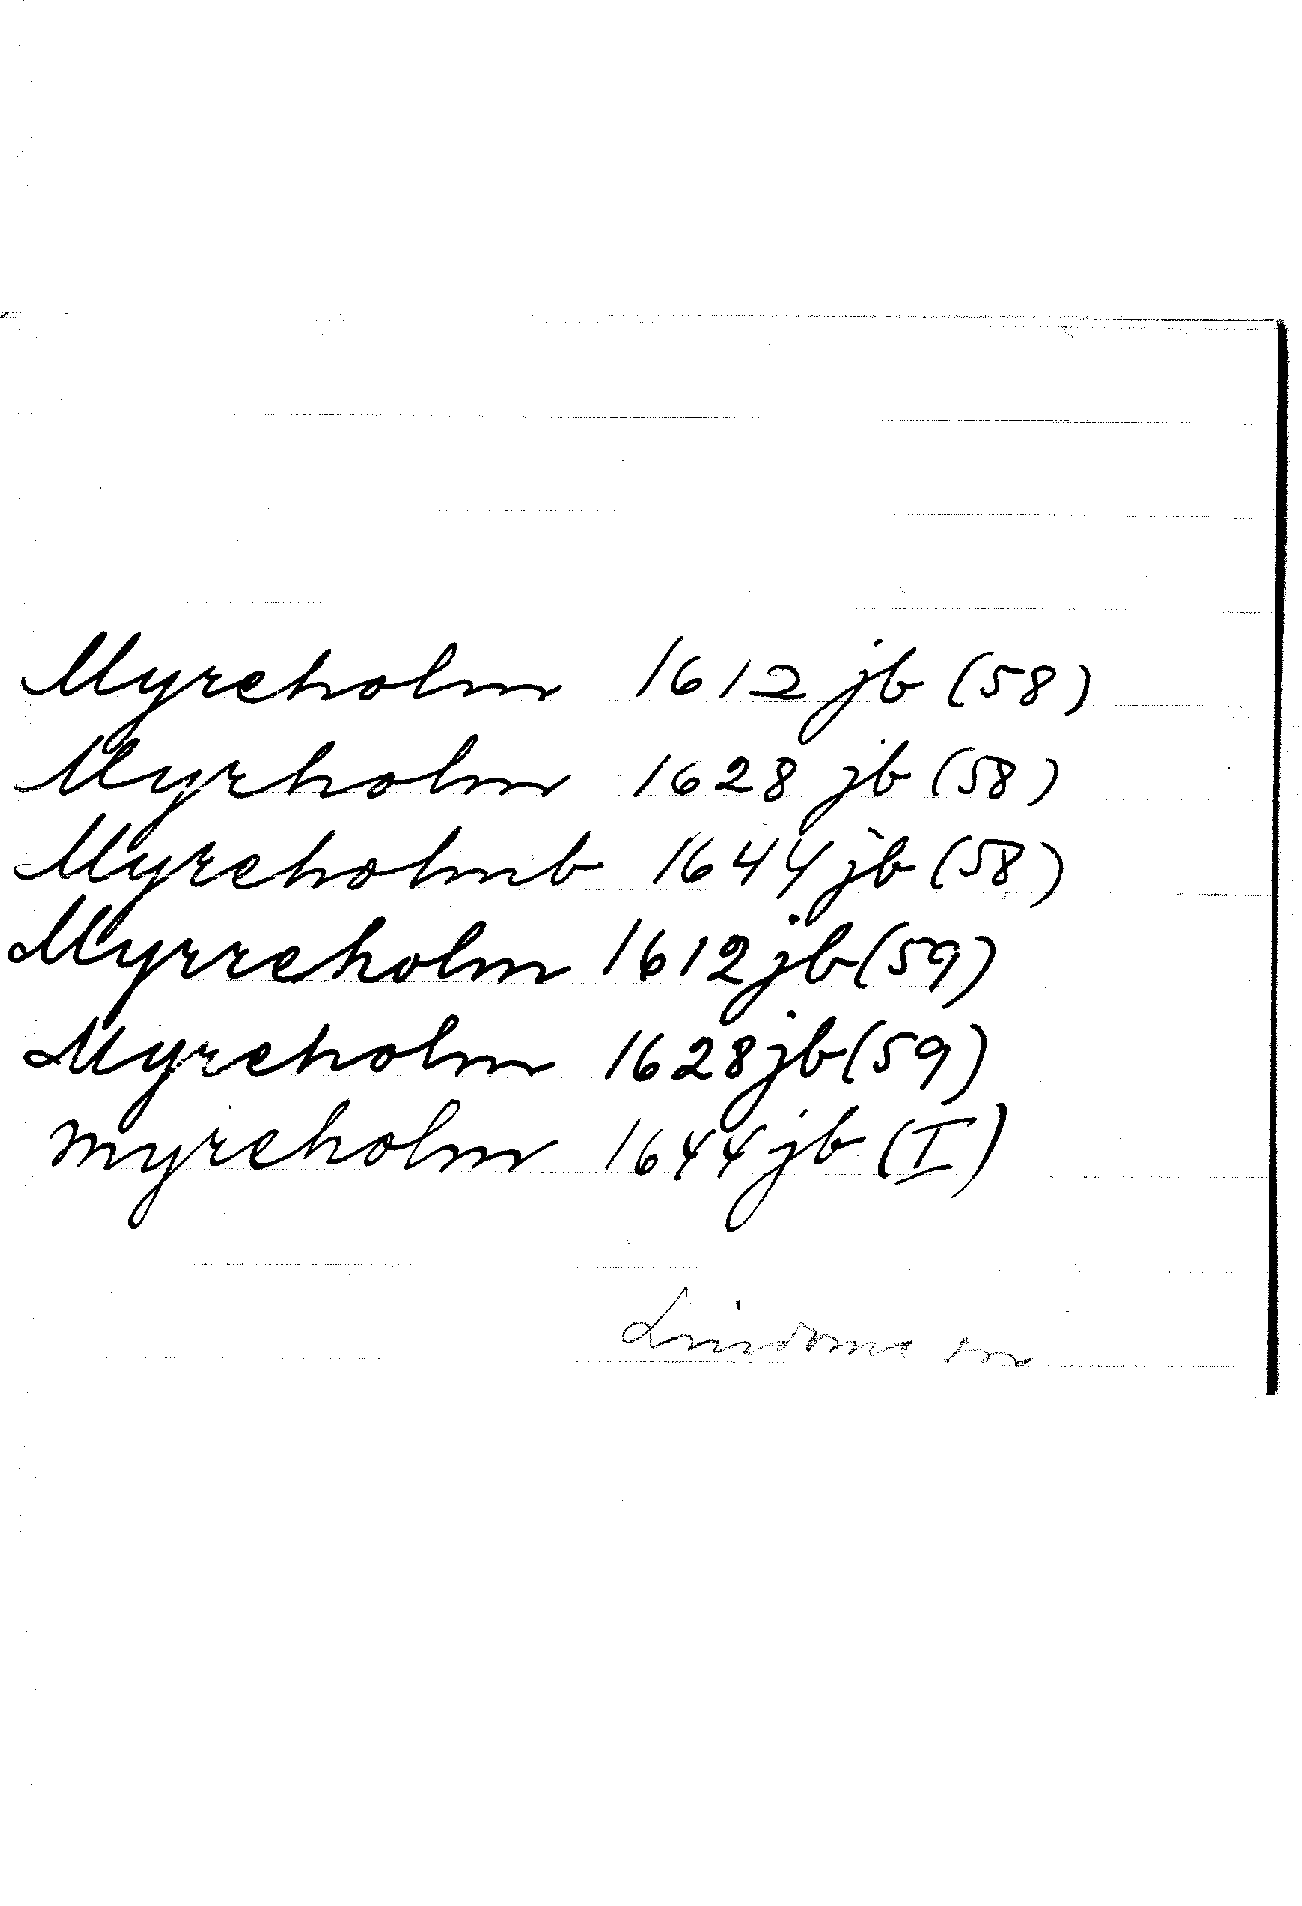 Myreholm 1612 jb (58)
Myrholm 1628 jb (58)
Myreholmb 1644 jb (58)
Myrreholm 1612 jb (59)
Myreholm 1628 jb (59)
Myreholm 1644 jb (I)
Lindome sn